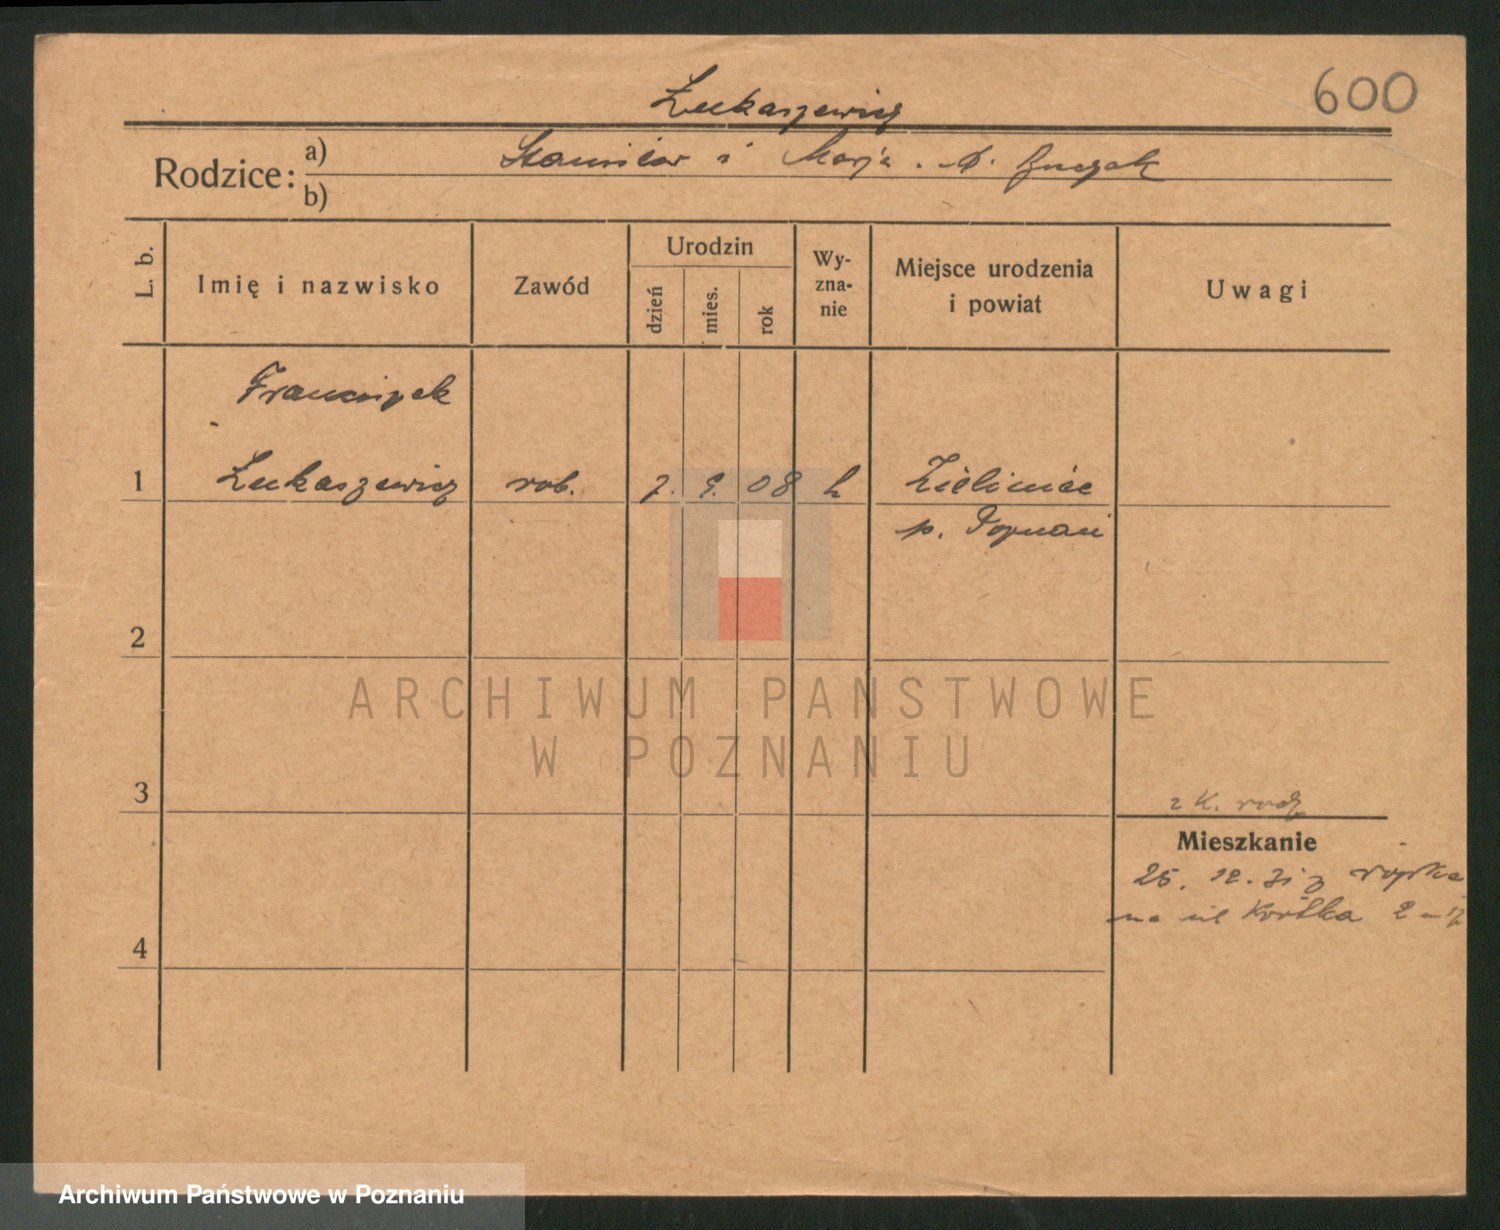 600
Łukaszewicz
Rodzice: a) Stanisław i Marja
b)
L. b.
Imię i nazwisko
Zawód
Urodzin
dzień
mies.
rok
Wy-
zna-
nie
Miejsce urodzenia
i powiat
Uwagi
Franciszek
1 Łukaszewicz rob. 7. 9. 08 k Zieliniec
p. Poznań
2
3
4
z K. rodz
Mieszkanie
25. 12. 31 z
na ul
ARCHIWUM PAŃSTWOWE
W POZNANIU
Archiwum Państwowe w Poznaniu